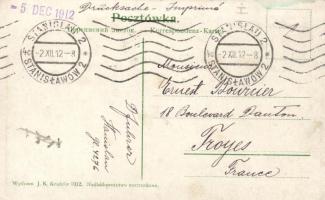 Drucksache - Imprimé
- 5 DEC 1912
Pocztówka.
Korrespondenz-Karte
STANISLAU 2
-2 XII. 12-8
* STANISŁAWÓW 2 *
STANISLAU 2
-2 XII. 12-8
* STANISŁAWÓW 2 *
Monsieur
Ernest Bournier
18 Boulevard Danton
Troyes
France
Stanislau
Wydawn. J. K. Kraków 1912.